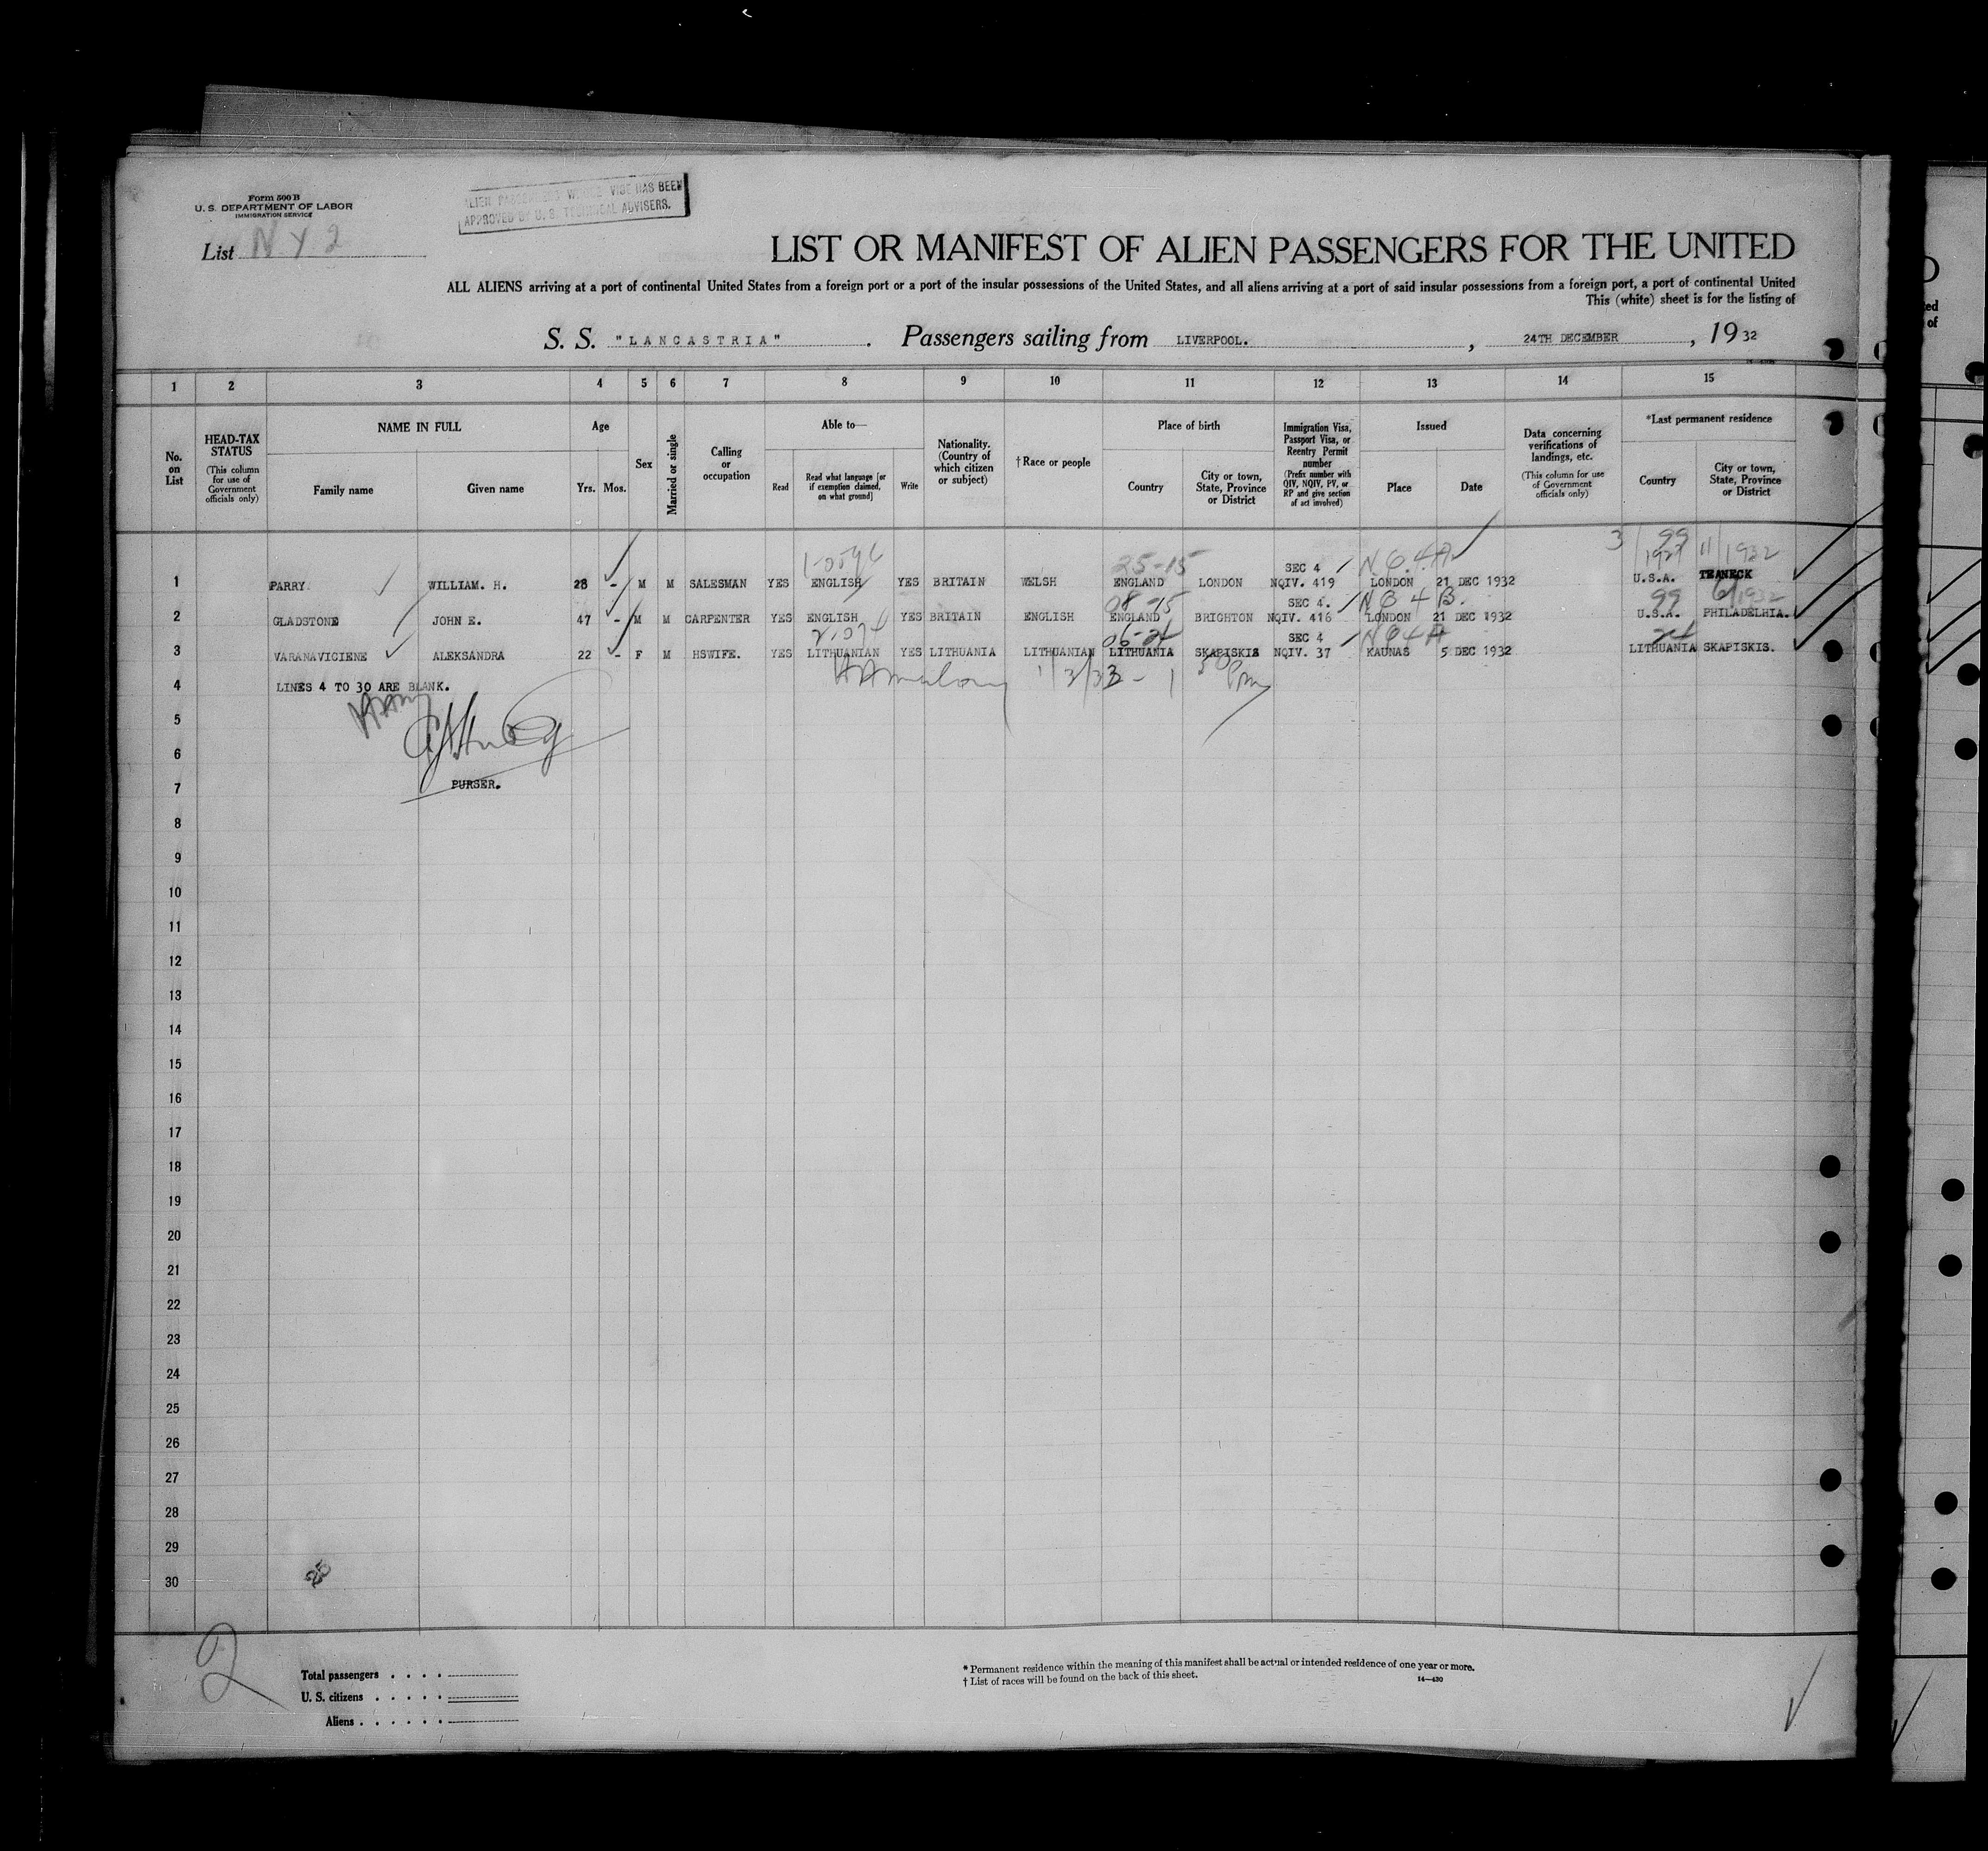 Form 500 B
U. S. DEPARTMENT OF LABOR
IMMIGRATION SERVICE
ALIEN PASSENGERS WHOSE VISE HAS BEEN
APPROVED BY U. S. TECHNICAL ADVISERS.
List N Y 2
LIST OR MANIFEST OF ALIEN PASSENGERS FOR THE UNITED
ALL ALIENS arriving at a port of continental United States from a foreign port or a port of the insular possessions of the United States, and all aliens arriving at a port of said insular possessions from a foreign port, a port of continental United
This (white) sheet is for the listing of
S. S. "LANCASTRIA". Passengers sailing from LIVERPOOL. , 24TH DECEMBER , 19 32
1 2 3 4 5 6 7 8 9 10 11 12 13 14 15
No. on List
HEAD-TAX STATUS (This column for use of Government officials only)
NAME IN FULL
Family name Given name
Age
Yrs. Mos.
Sex
Married or single
Calling or occupation
Able to—
Read Read what language [or if exemption claimed, on what ground] Write
Nationality. (Country of which citizen or subject)
† Race or people
Place of birth
Country City or town, State, Province or District
Immigration Visa, Passport Visa, or Reentry Permit number (Prefix number with QIV, NQIV, PV, or RP and give section of act involved)
Issued
Place Date
Data concerning verifications of landings, etc. (This column for use of Government officials only)
*Last permanent residence
Country City or town, State, Province or District
25-15 SEC 4 N.Q.4A 3 99 1927 11/1932
1 PARRY. WILLIAM. H. 28 - M M SALESMAN YES ENGLISH YES BRITAIN WELSH ENGLAND LONDON NQIV. 419 LONDON 21 DEC 1932 U.S.A. TEANECK
08-15 SEC 4. N Q 4 B. 99 1932
2 GLADSTONE JOHN E. 47 - M M CARPENTER YES ENGLISH YES BRITAIN ENGLISH ENGLAND BRIGHTON NQIV. 416 LONDON 21 DEC 1932 U.S.A. PHILADELHIA.
06-24 SEC 4 N Q 4 A 24
3 VARANAVICIENE ALEKSANDRA 22 - F M HSWIFE. YES LITHUANIAN YES LITHUANIA LITHUANIAN LITHUANIA SKAPISKIS NQIV. 37 KAUNAS 5 DEC 1932 LITHUANIA SKAPISKIS.
4 LINES 4 TO 30 ARE BLANK. 1/3/33 - 1 50 Pm
5
6
7 PURSER.
8
9
10
11
12
13
14
15
16
17
18
19
20
21
22
23
24
25
26
27
28
29
30
2
Total passengers . . . .
U. S. citizens . . . . .
Aliens . . . . . .
* Permanent residence within the meaning of this manifest shall be actual or intended residence of one year or more.
† List of races will be found on the back of this sheet.
14—430